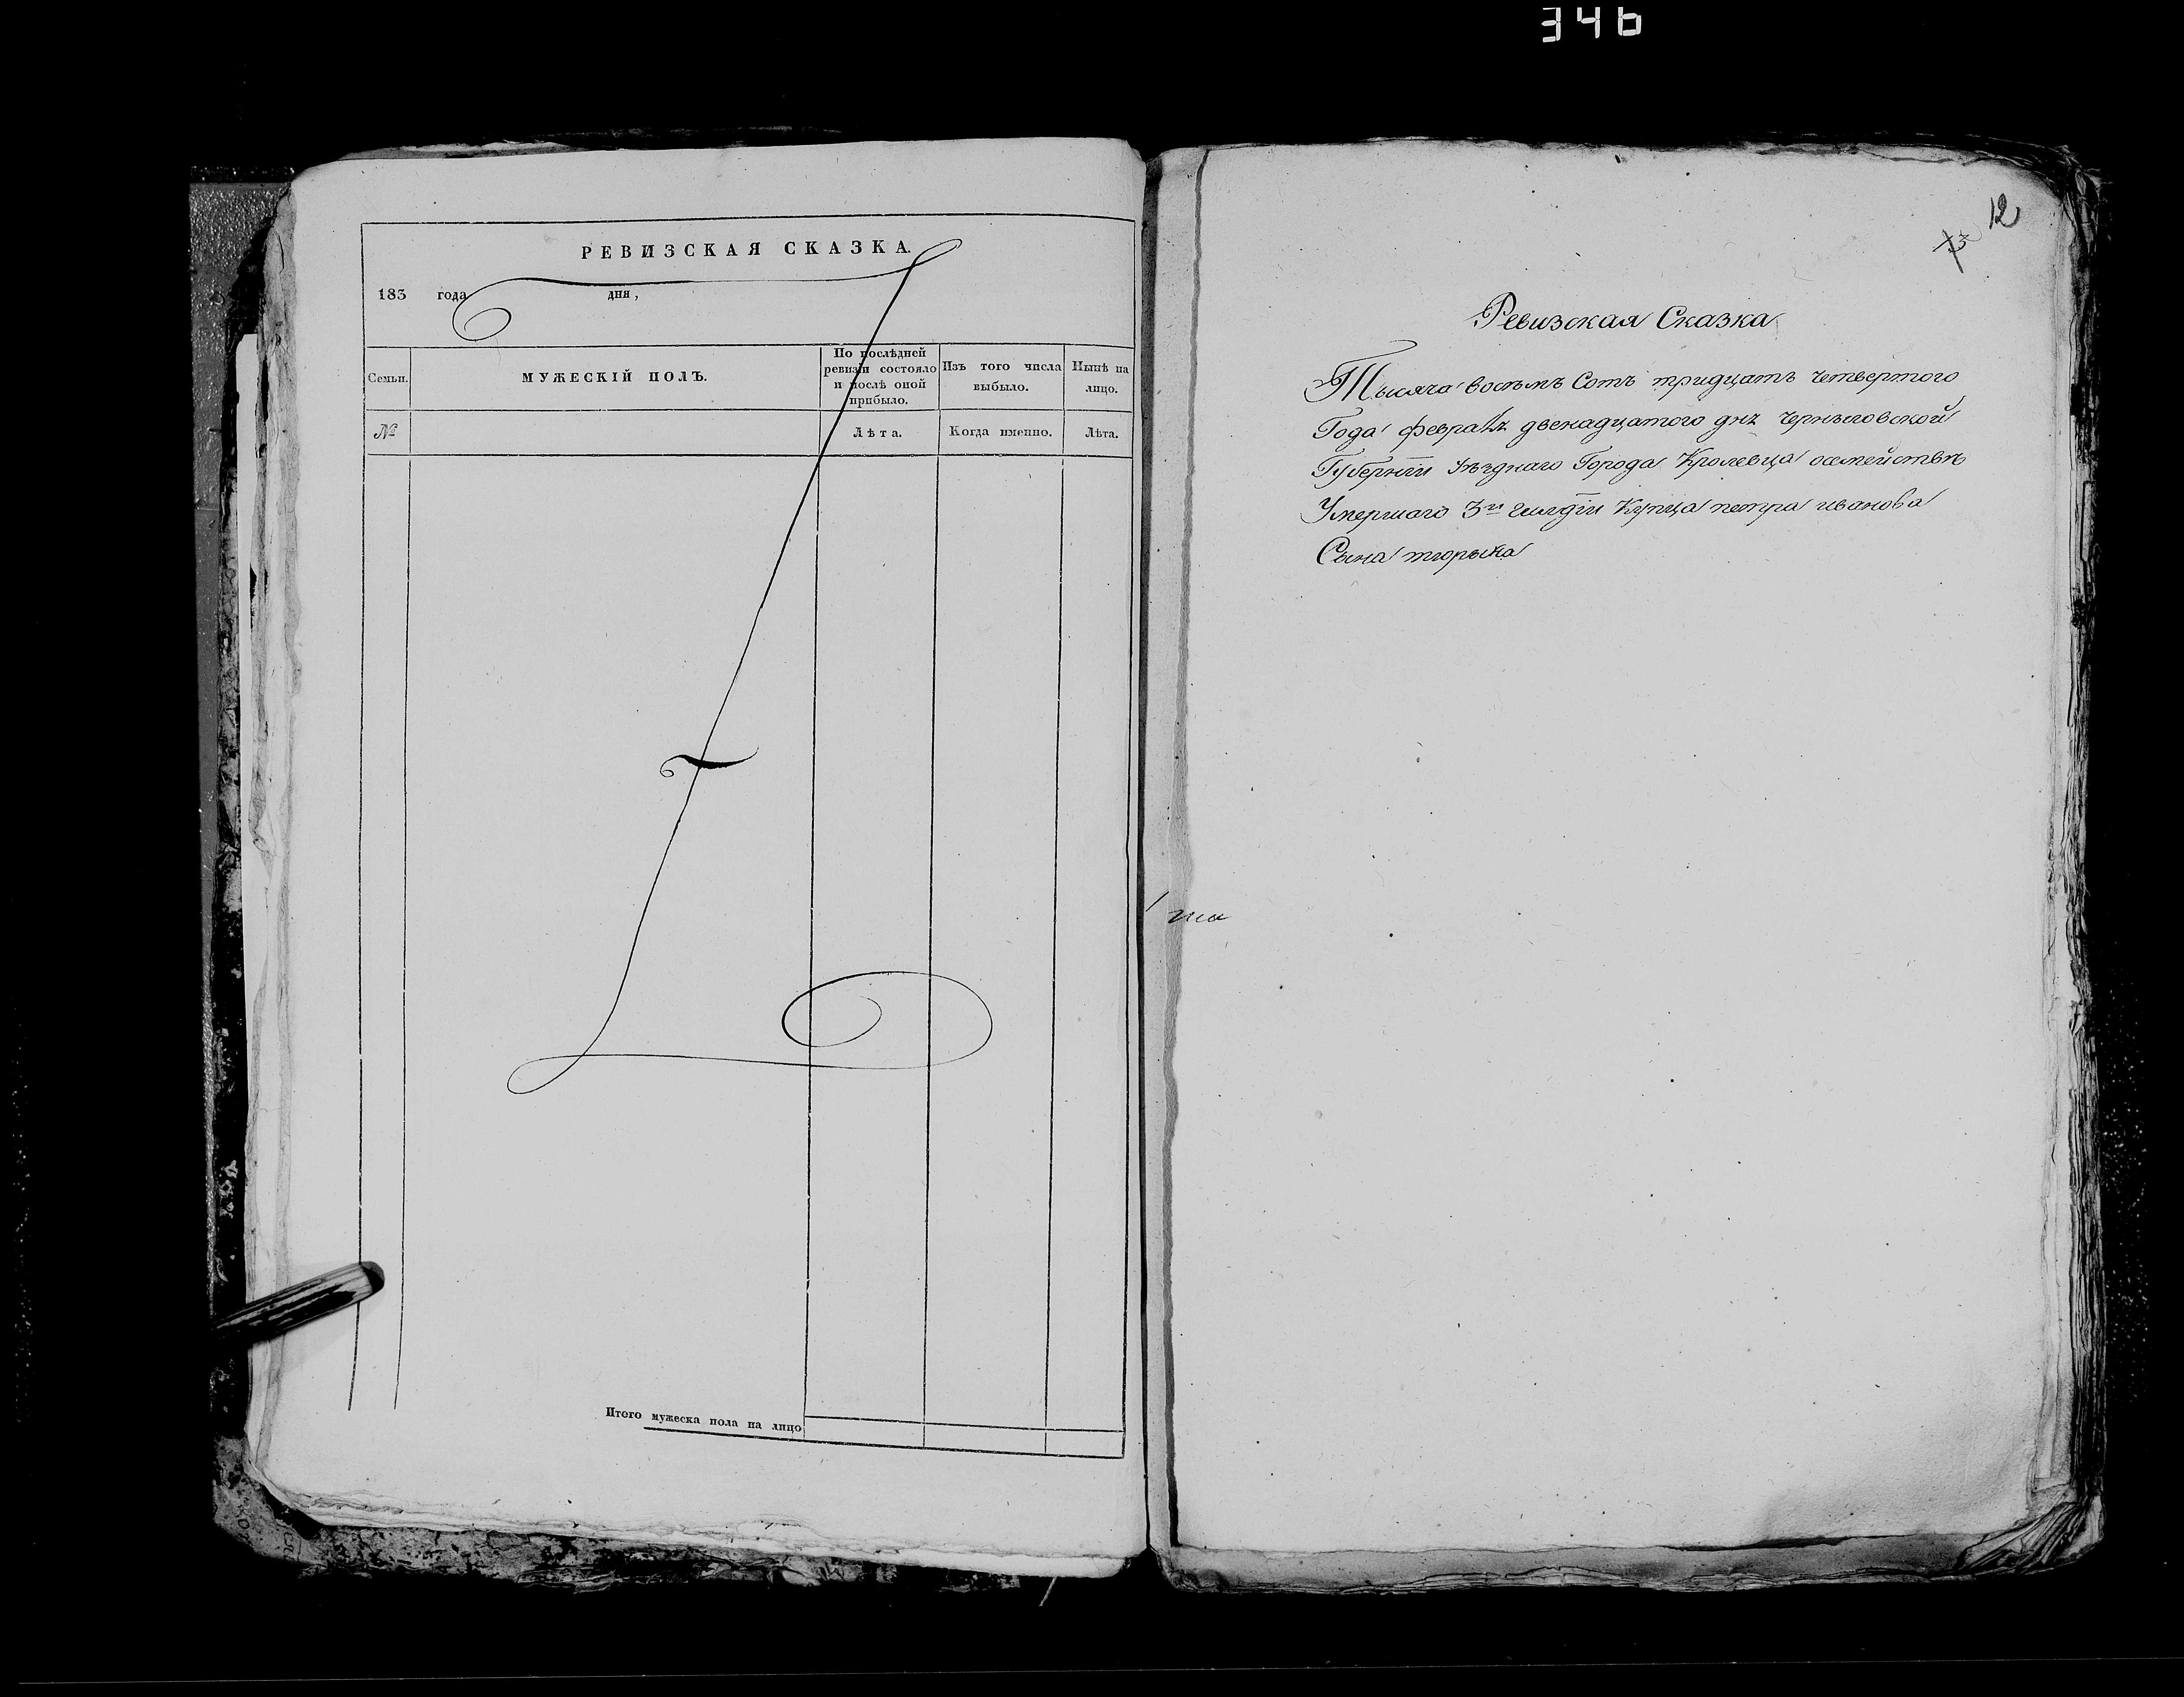 346
РЕВИЗСКАЯ СКАЗКА.
183 года дня,
Семьи.
МУЖЕСКІЙ ПОЛЪ.
По послѣдней
ревизіи состояло
и послѣ оной
прибыло.
Изъ того числа
выбыло.
Нынѣ на
лицо.
№
Лѣта.
Когда именно.
Лѣта.
Итого мужеска пола на лицо
12
13
Ревизская Сказка
Тысяча восѣмъ Сотъ тридцать четвертого
Года февраля двенадцатого дня Чернѣговской
Губерніи уѣзднаго Города Кролевца осемействѣ
Умершаго 3й Гилдіи Купца петра иванова
Сына